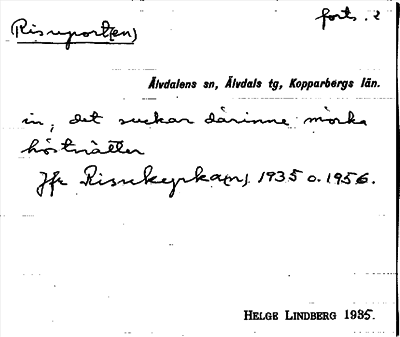 Risuport(en)
forts. 2
Älvdalens sn, Älvdals tg, Kopparbergs län.
in; det suckar därinne mörka
höstnätter
Jfr Risukyrka(n) 1935 o. 1956.
HELGE LINDBERG 1935.